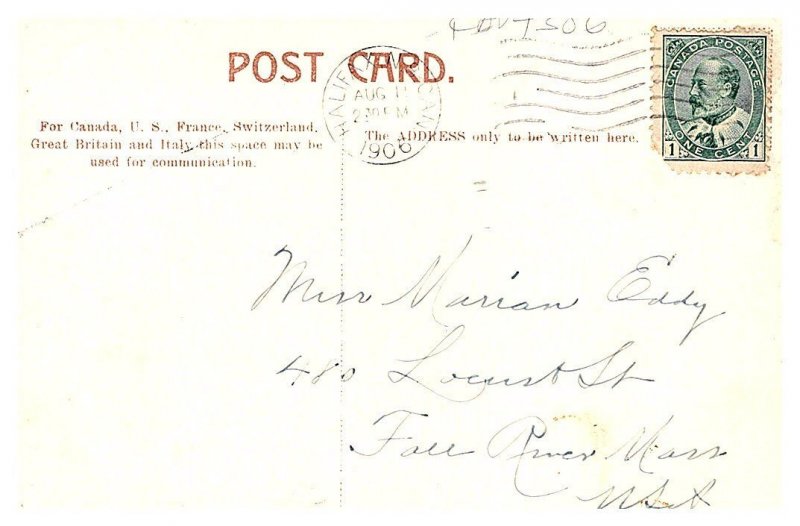 POST CARD.
HALIFAX
CAN
AUG 11
1906
CANADA POSTAGE
ONE CENT
1 1
For Canada, U. S., France, Switzerland,
Great Britain and Italy this space may be
used for communication.
The ADDRESS only to be written here.
Miss Marian Eddy
480 Locust St
Fall River Mass
USA